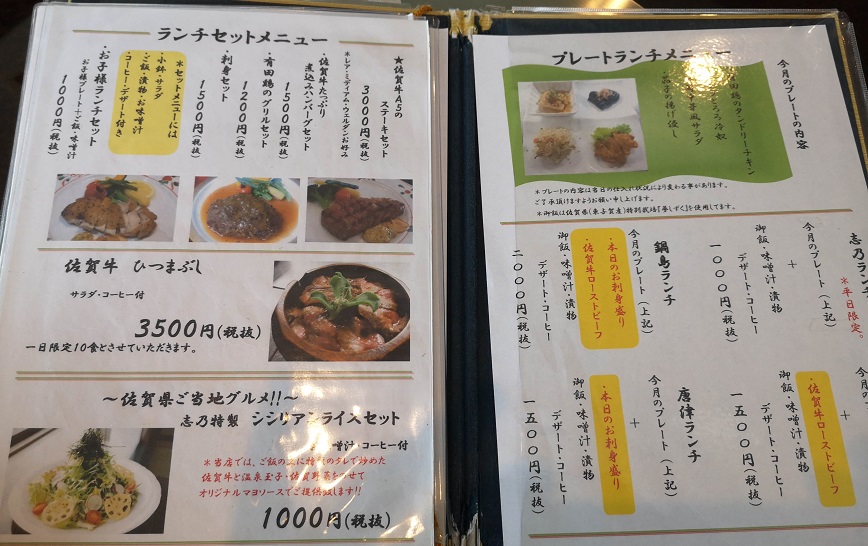 ランチセットメニュー
★佐賀牛A5の
ステーキセット
3000円(税抜)
＊レア・ミディアム・ウェルダンお好み
佐賀牛たっぷり
煮込みハンバーグセット
1500円(税抜)
・有田鶏のグリルセット
1200円(税抜)
・刺身セット
1500円(税抜)
＊セットメニューには
小鉢・サラダ
ご飯・漬物・お味噌汁
コーヒー・デザート付き
・お子様ランチセット
お子様プレート＋ご飯・味噌汁
1000円(税抜)
佐賀牛 ひつまぶし
サラダ・コーヒー付
3500円(税抜)
一日限定10食とさせていただきます。
～佐賀県ご当地グルメ!!～
志乃特製 シシリアンライスセット
味噌汁・コーヒー付
＊当店では、ご飯の上に特製のタレで炒めた
佐賀牛と温泉玉子・佐賀野菜をのせて
オリジナルマヨソースでご提供致します!!
1000円(税抜)
プレートランチメニュー
今月のプレートの内容
有田鶏のタンドリーチキン
とろろ冷奴
サラダ
茄子の揚げ浸し
＊プレートの内容は当日の仕入れ状況により変わる事があります。
ご了承頂けますようお願い申し上げます。
＊御飯は佐賀県(東与賀産)特別栽培『夢しずく』を使用してます。
＊平日限定。
今月のプレート(上記)
＋
御飯・味噌汁・漬物
デザート・コーヒー
一〇〇〇円(税抜)
鍋島ランチ
今月のプレート(上記)
・本日のお刺身盛り
・佐賀牛ローストビーフ
御飯・味噌汁・漬物
デザート・コーヒー
二〇〇〇円(税抜)
今月の
＋
・佐賀牛ローストビーフ
御飯・味噌汁・漬物
デザート・コーヒー
一五〇〇円(税抜)
唐津ランチ
今月のプレート(上記)
＋
・本日のお刺身盛り
御飯・味噌汁・漬物
デザート・コーヒー
一五〇〇円(税抜)